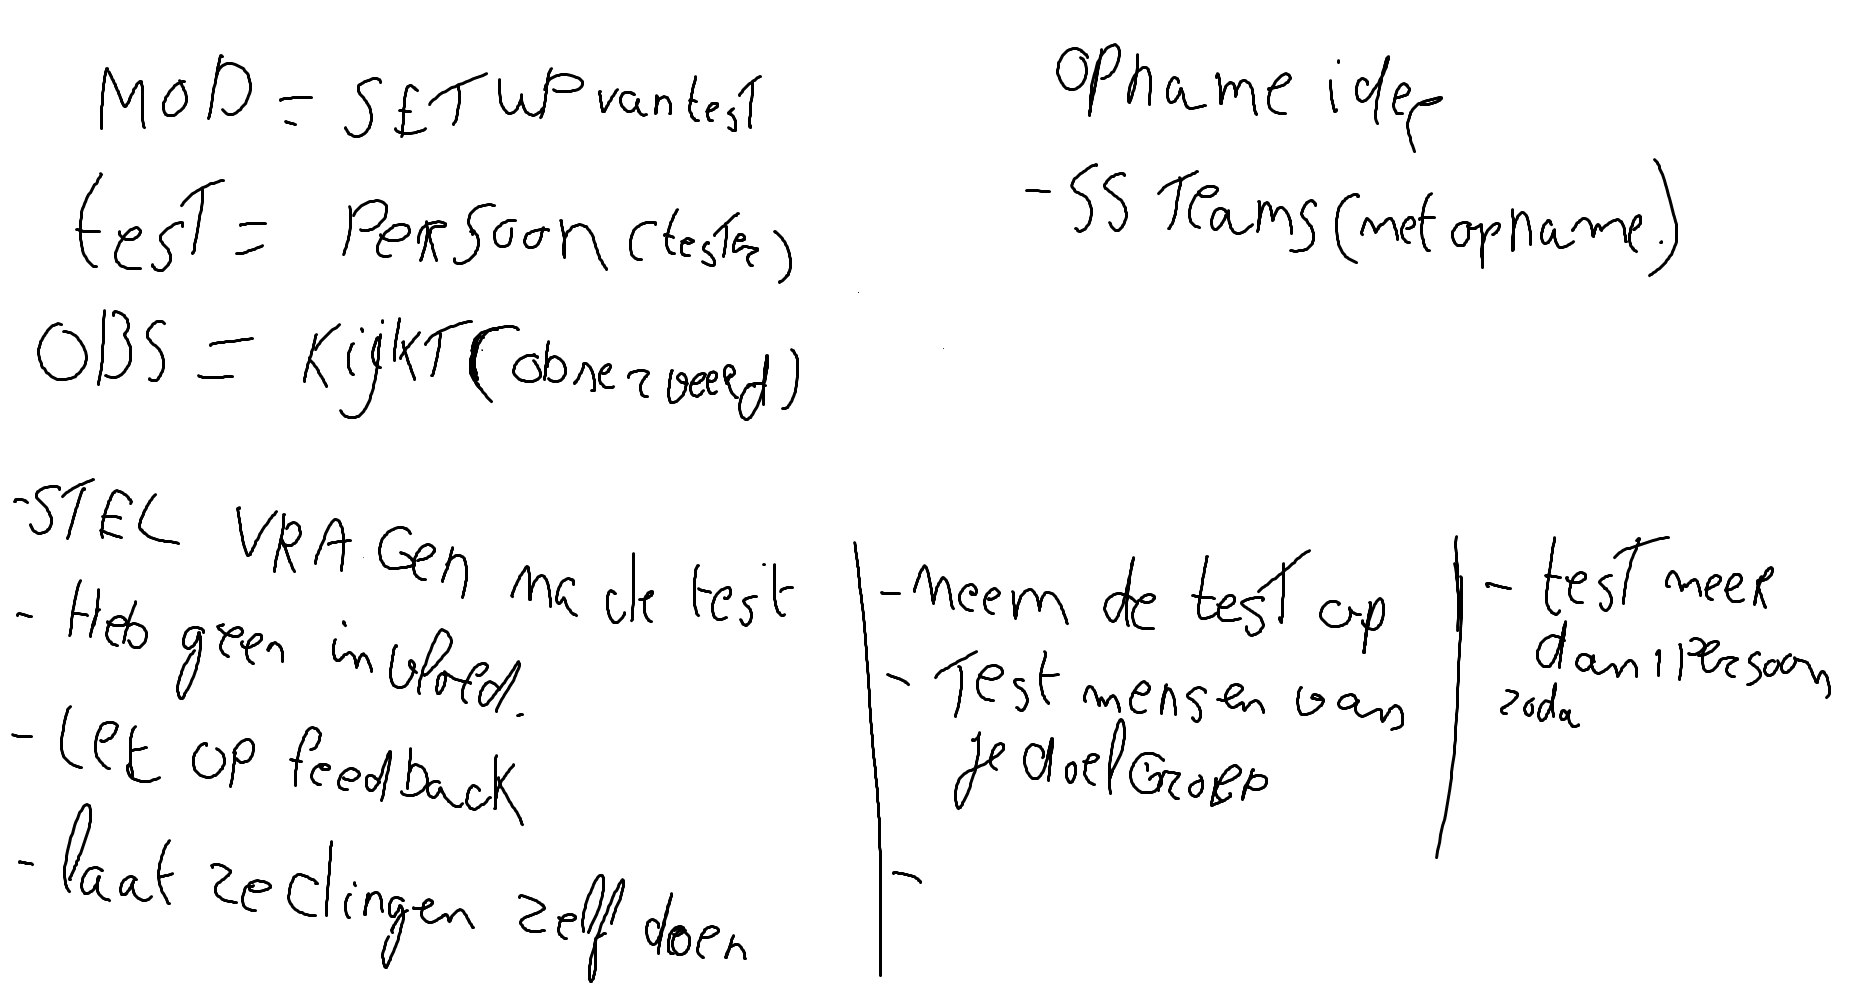 MOD = SETUP van test
test = Persoon (tester)
OBS = Kijkt (observeerd)
opname idee
- SS Teams (met opname.)
- STEL VRAGen na de test
- Heb geen invloed.
- Let op feedback
- laat ze dingen zelf doen
- neem de test op
- Test mensen van
je doelGroep
-
- test meer
dan 1 persoon
zoda